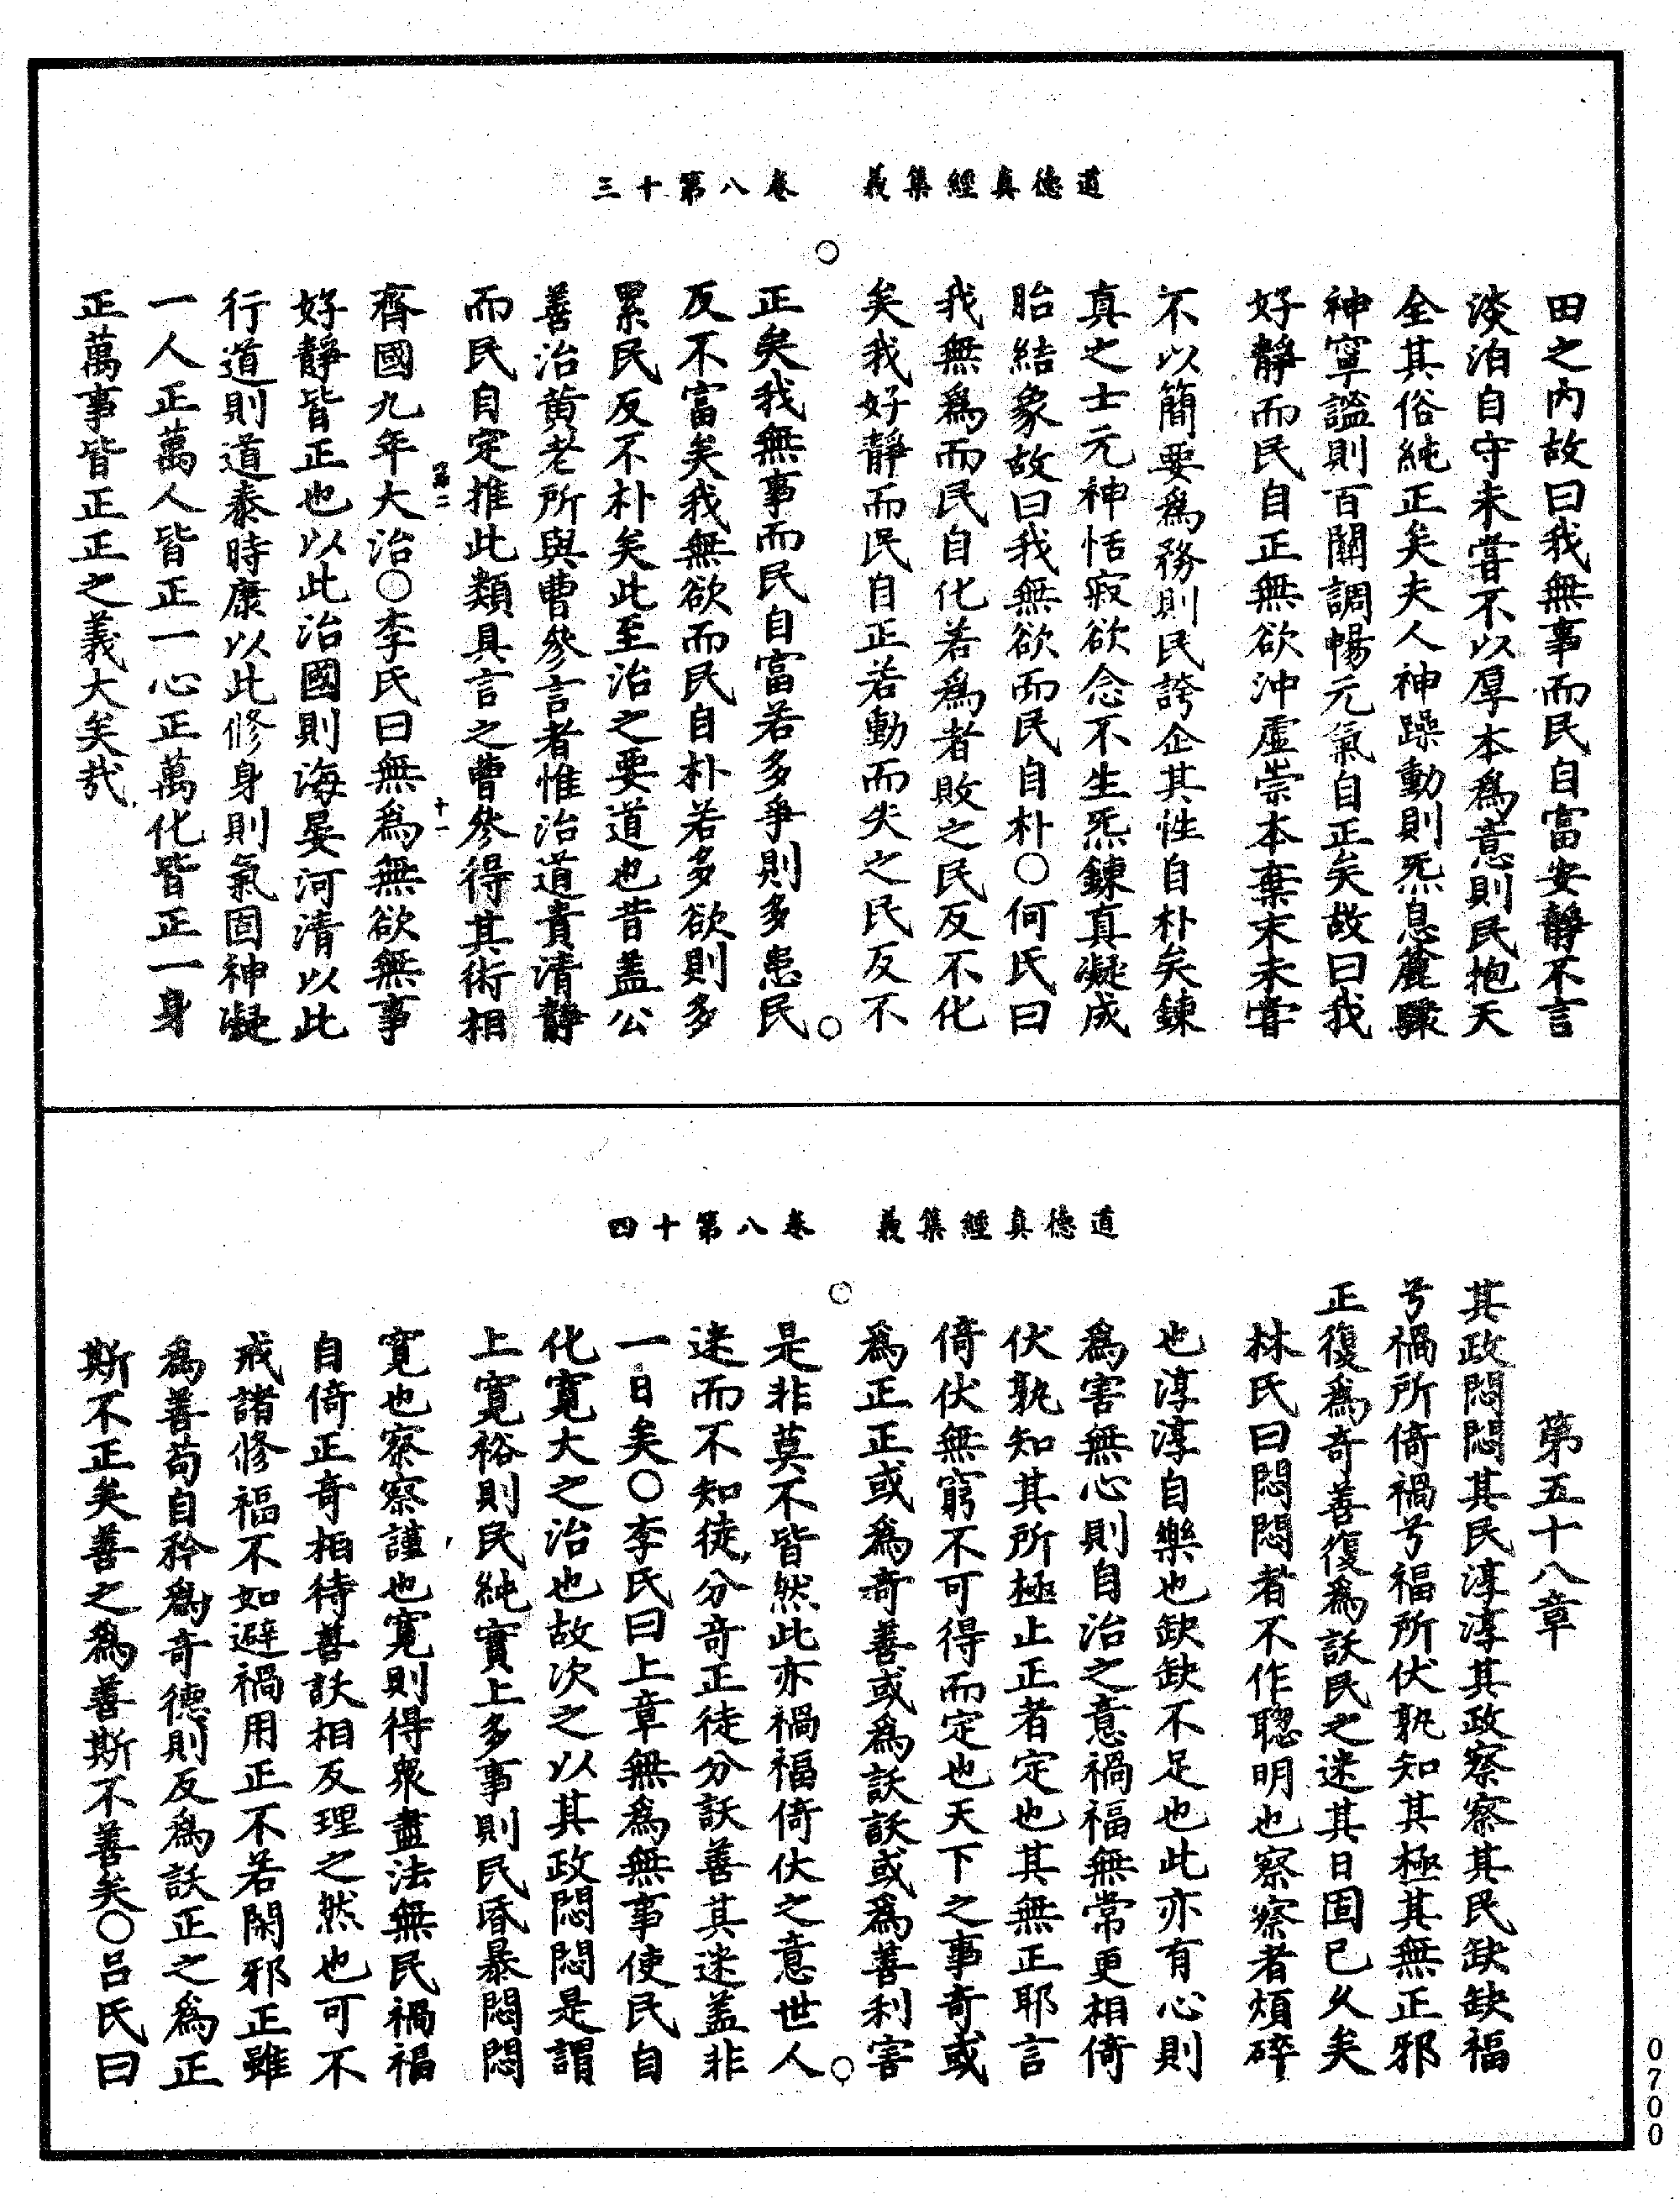 道德真經集義　卷八第十三
田之內故曰我無事而民自富安靜不言
淡泊自守未嘗不以厚本為意則民抱天
全其俗純正矣夫人神躁動則炁息麄驟
神寧謐則百關調暢元氣自正矣故曰我
好靜而民自正無欲沖虛崇本棄末未嘗
不以簡要為務則民誇企其性自朴矣鍊
真之士元神恬寂欲念不生炁鍊真凝成
胎結象故曰我無欲而民自朴○何氏曰
我無為而民自化若為者敗之民反不化
矣我好靜而民自正若動而失之民反不
正矣我無事而民自富若多爭則多患民
反不富矣我無欲而民自朴若多欲則多
累民反不朴矣此至治之要道也昔蓋公
善治黃老所與曹參言者惟治道貴清靜
而民自定推此類具言之曹參得其術相
十一
齊國九年大治○李氏曰無為無欲無事
好靜皆正也以此治國則海晏河清以此
行道則道泰時康以此修身則氣固神凝
一人正萬人皆正一心正萬化皆正一身
正萬事皆正正之義大矣哉
道德真經集義　卷八第十四
第五十八章
其政悶悶其民淳淳其政察察其民缺缺福
兮禍所倚禍兮福所伏孰知其極其無正邪
正復為奇善復為訞民之迷其日固已久矣
林氏曰悶悶者不作聰明也察察者煩碎
也淳淳自樂也缺缺不足也此亦有心則
為害無心則自治之意禍福無常更相倚
伏孰知其所極止正者定也其無正耶言
倚伏無窮不可得而定也天下之事奇或
為正正或為奇善或為訞訞或為善利害
是非莫不皆然此亦禍福倚伏之意世人
迷而不知徒分奇正徒分訞善其迷蓋非
一日矣○李氏曰上章無為無事使民自
化寬大之治也故次之以其政悶悶是謂
上寬裕則民純實上多事則民昏暴悶悶
寬也察察謹也寬則得衆盡法無民禍福
自倚正奇相待善訞相反理之然也可不
戒諸修福不如避禍用正不若閑邪正雖
為善苟自矜為奇德則反為訞正之為正
斯不正矣善之為善斯不善矣○呂氏曰
0700